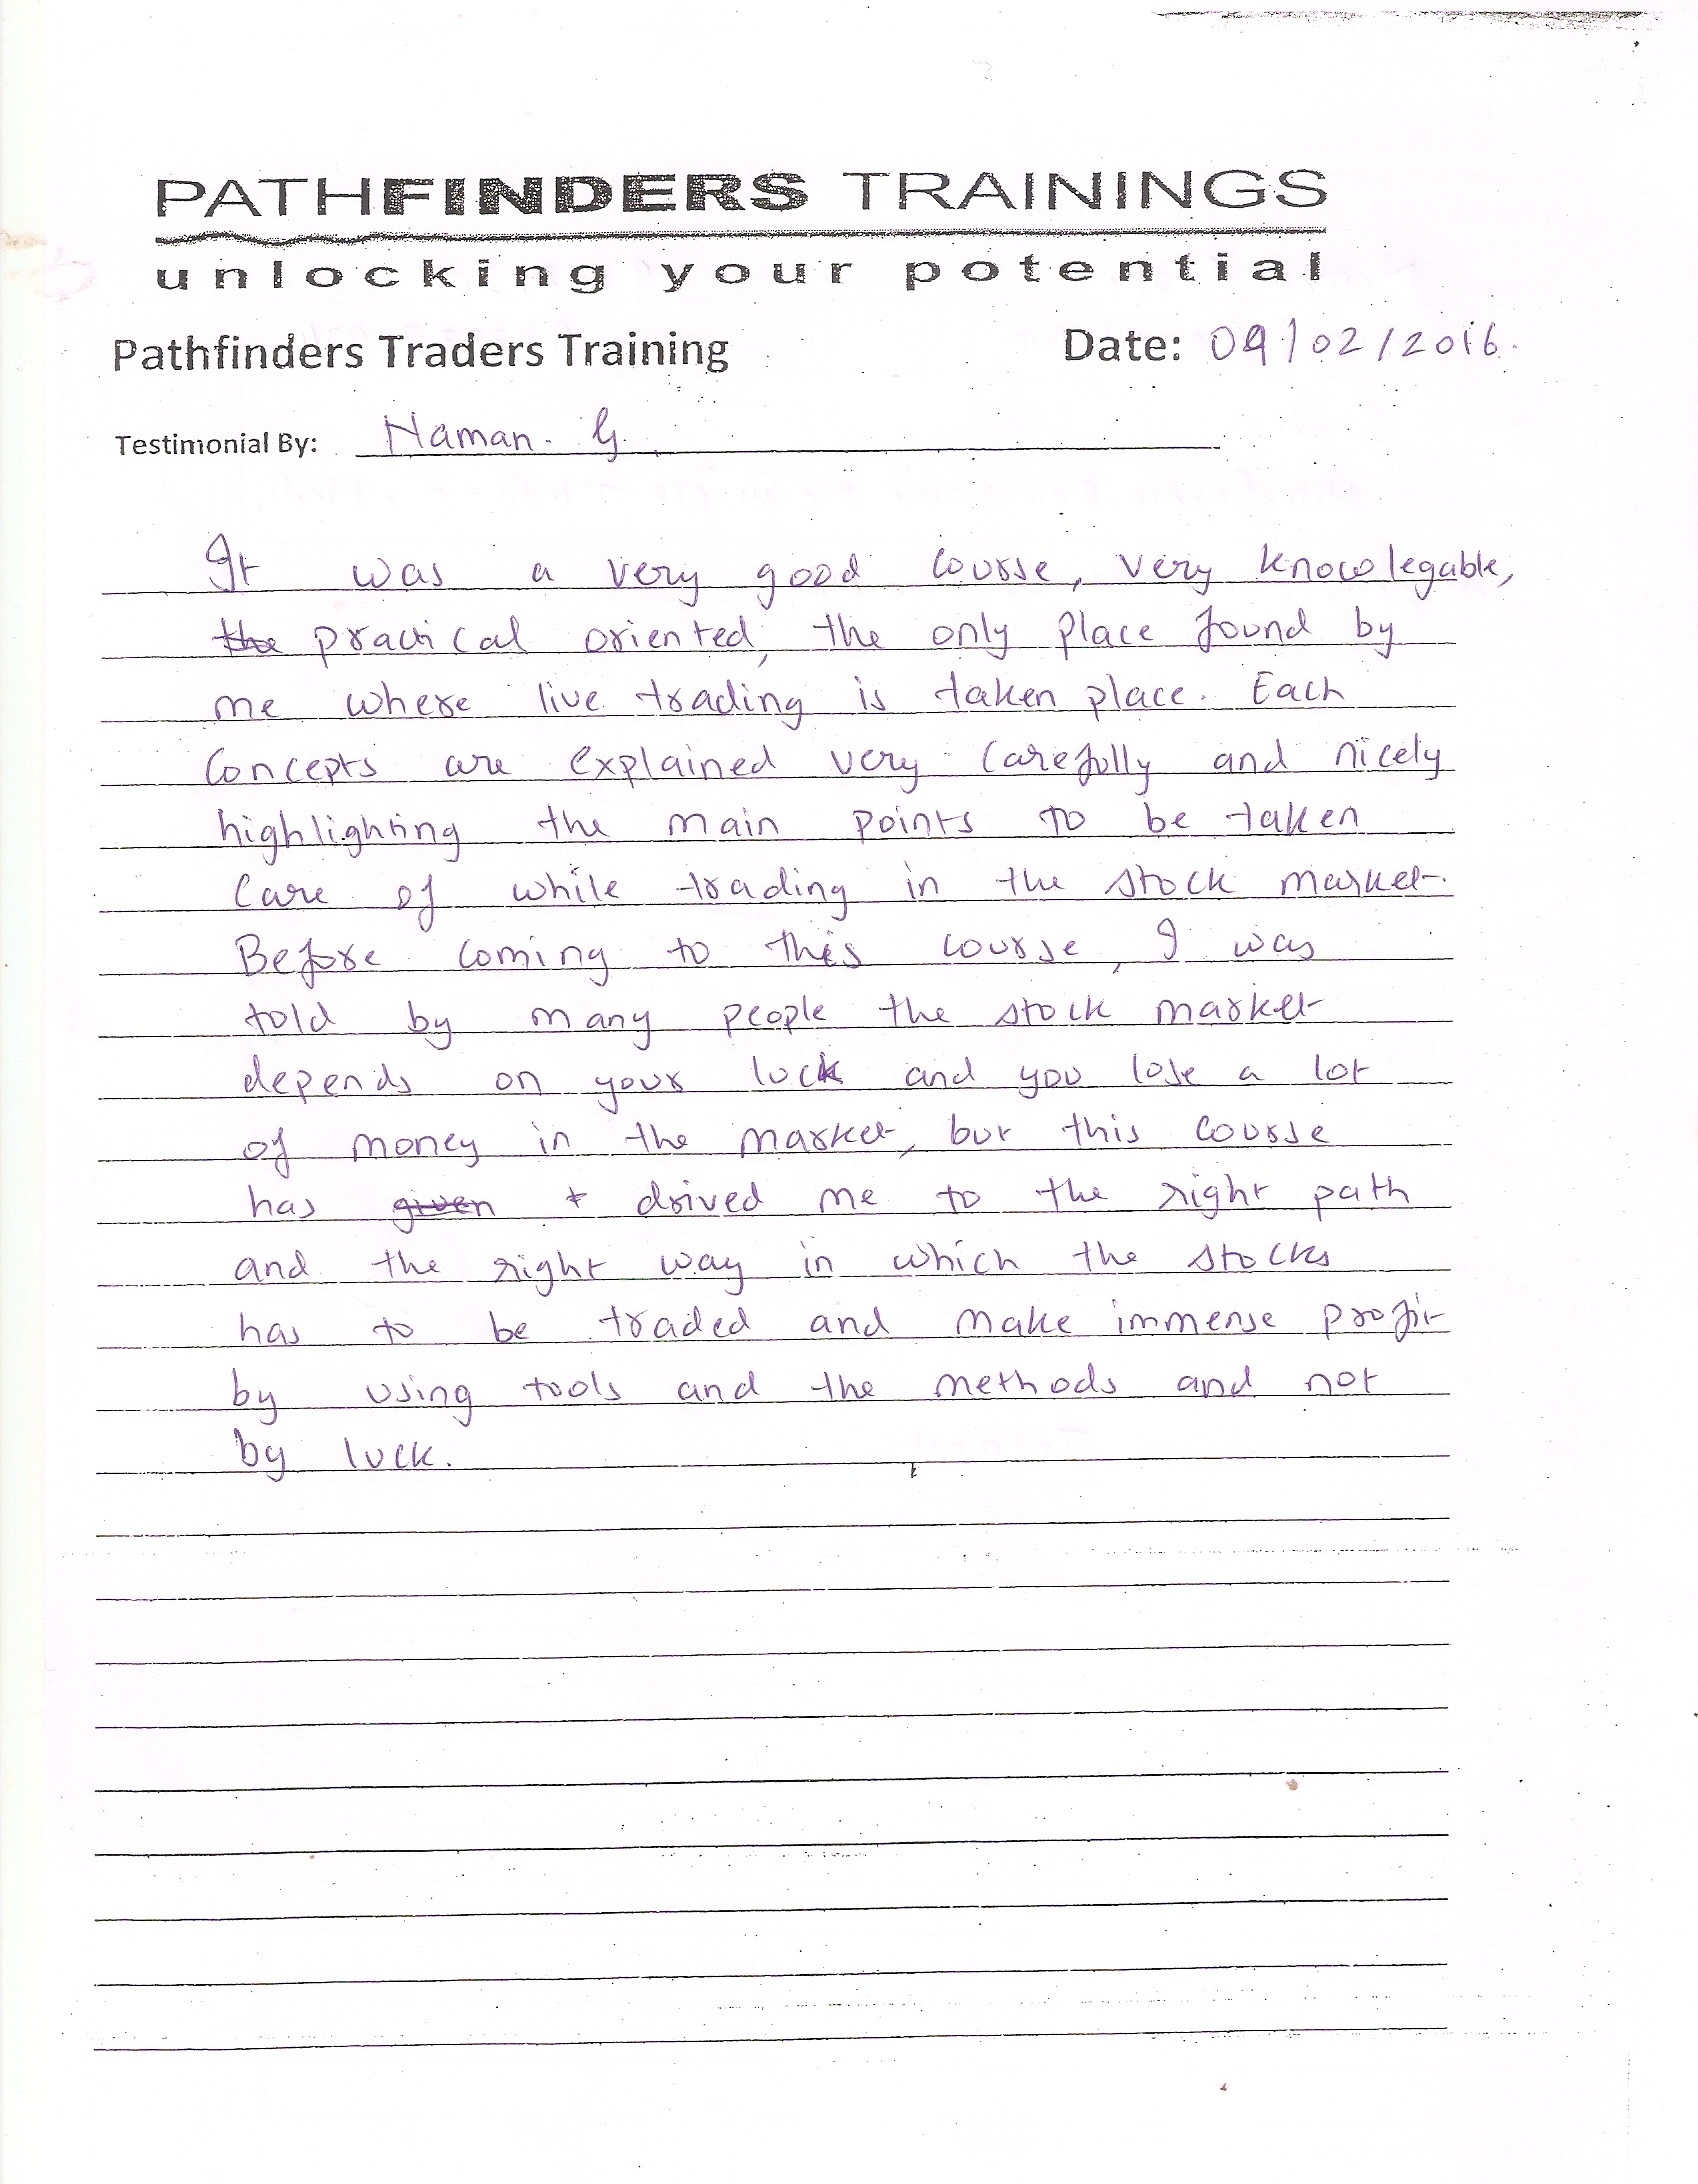 PATHFINDERS TRAININGS
unlocking your potential
Pathfinders Traders Training Date: 09/02/2016.
Testimonial By: Naman. G.
It was a very good course, very knowlegable,
the practical oriented, the only place found by
me where live trading is taken place. Each
Concepts are explained very carefully and nicely
highlighting the main points to be taken
care of while trading in the stock market.
Before coming to this course, I was
told by many people the stock market
depends on your luck and you lose a lot
of money in the market, but this course
has given drived me to the right path
and the right way in which the stocks
has to be traded and make immense profit
by using tools and the methods and not
by luck.